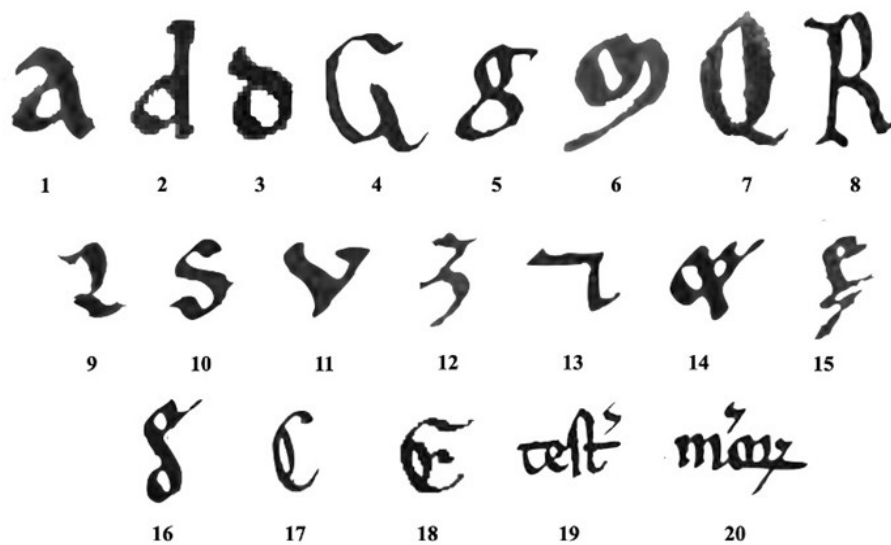 a d d G g 9 Q R
1 2 3 4 5 6 7 8
2 S v 3 7
9 10 11 12 13 14 15
C E test
16 17 18 19 20